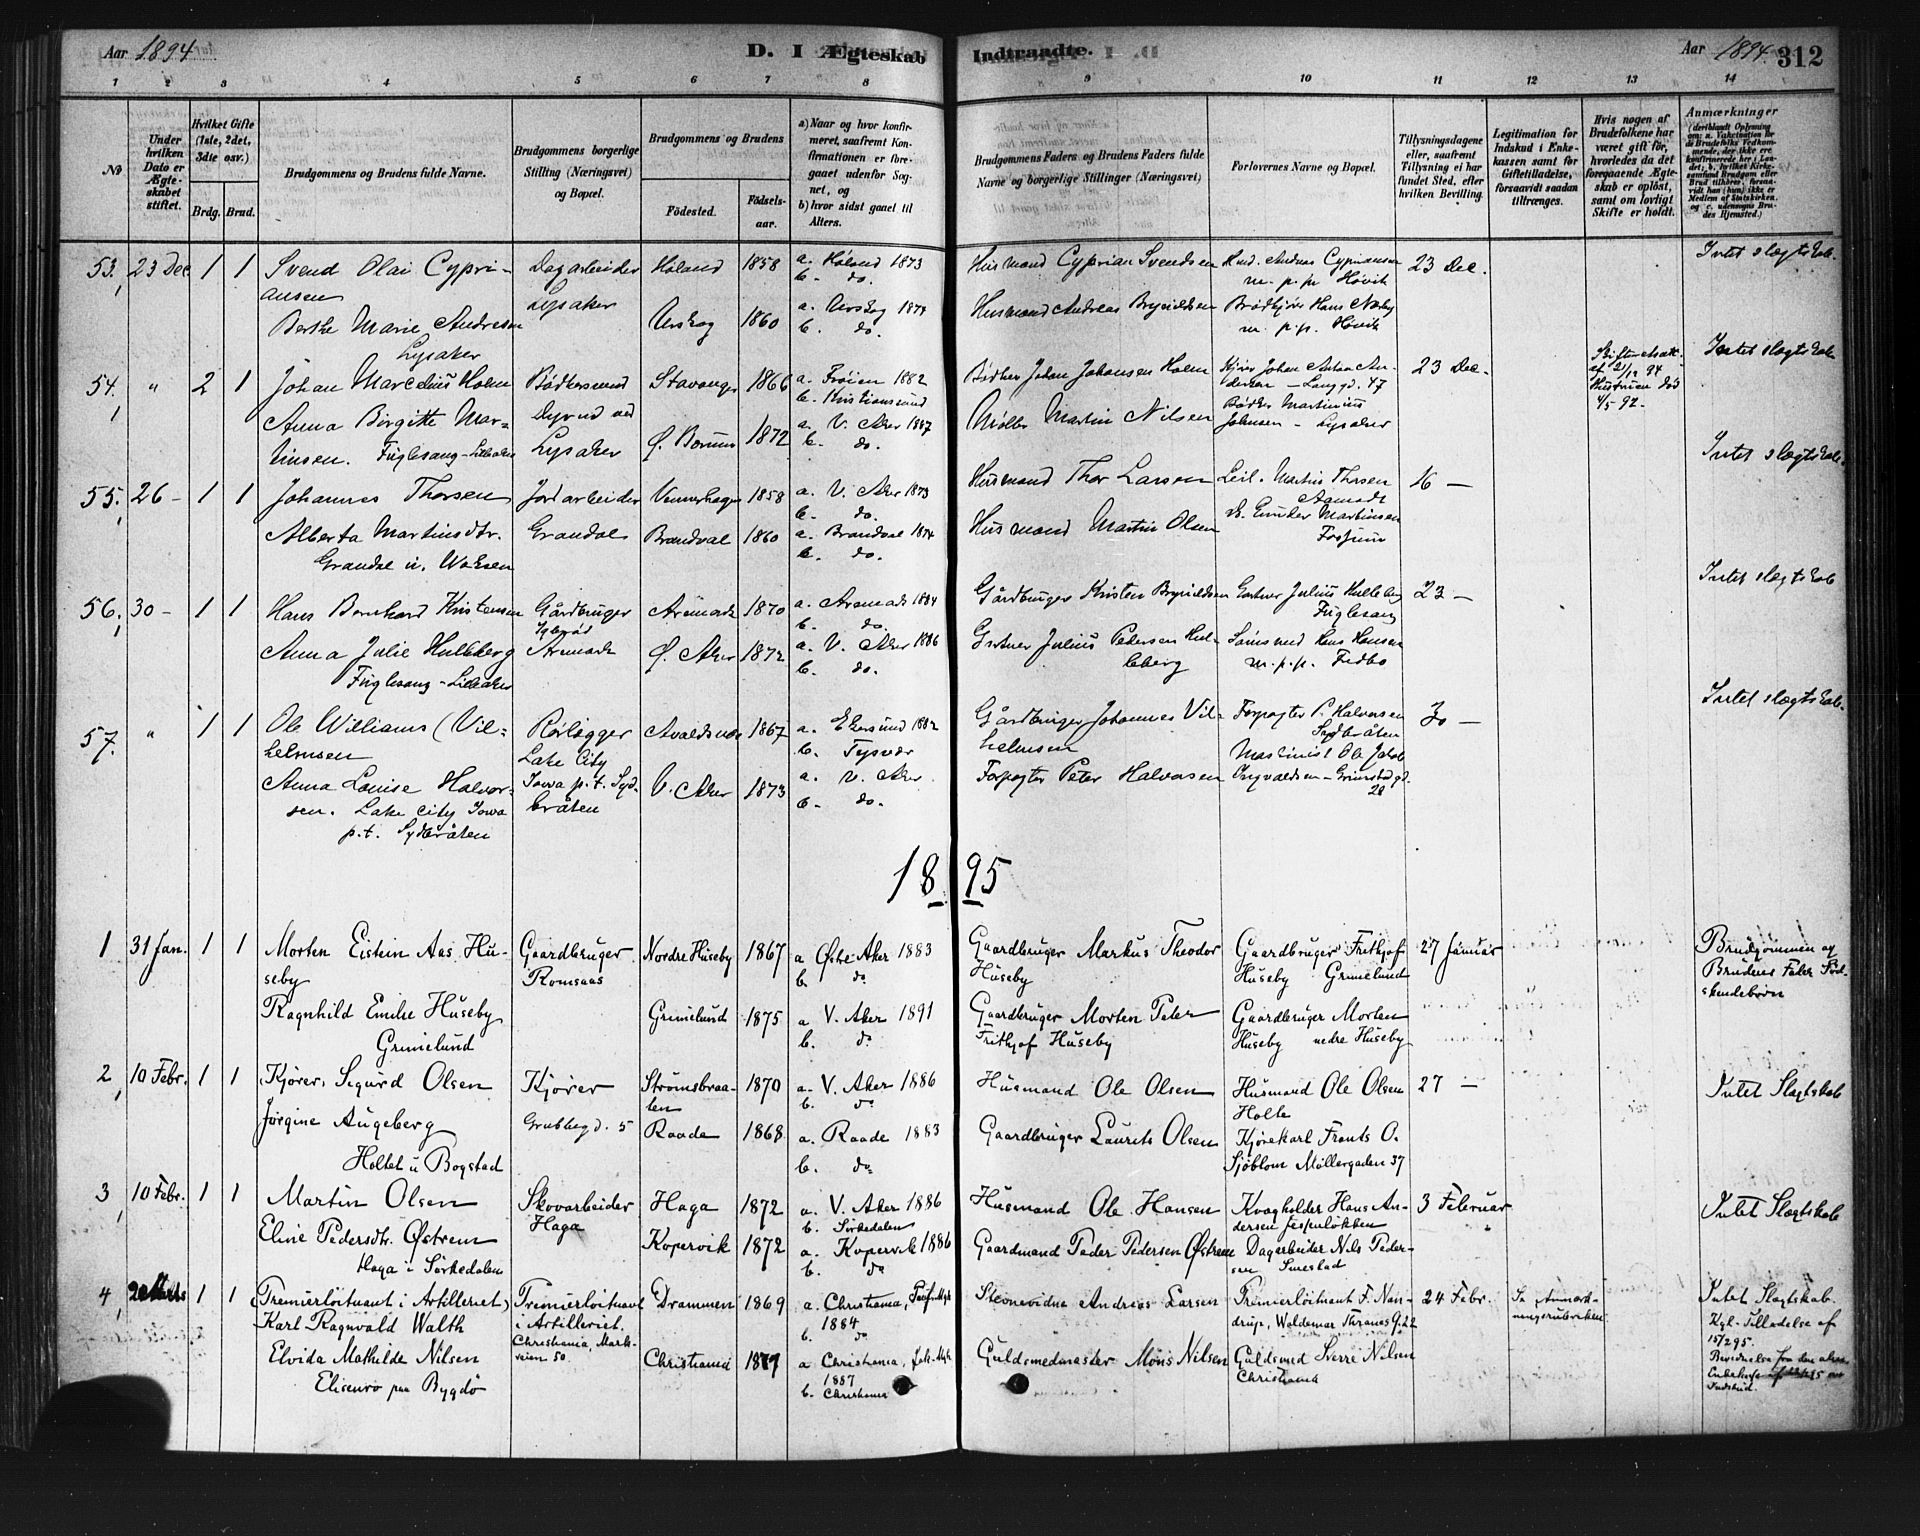 Aar 1894
D. I Ægteskab Indtraadte.
Aar 1894. 312
1 2 3 4 5 6 7 8 9 10 11 12 13 14
No
Under hvilken Dato er Ægteskabet stiftet.
Hvilket Gifte (1ste, 2det, 3die osv.)
Brdg. Brud.
Brudgommens og Brudens fulde Navne.
Brudgommens borgerlige Stilling (Næringsvei) og Bopæl.
Brudgommens og Brudens
Födested. Födselsaar.
a) Naar og hvor konfirmeret, saafremt Konfirmationen er foregaaet udenfor Sognet, og
b) hvor sidst gaaet til Alters.
Brudgommens Faders og Brudens Faders fulde Navne og borgerlige Stillinger (Næringsvei)
Forlovernes Navne og Bopæl.
Tillysningsdagene eller, saafremt Tillysning ei har fundet Sted, efter hvilken Bevilling.
Legitimation for Indskud i Enkekassen samt for Giftetilladelse, forsaavidt saadan tiltrænges.
Hvis nogen af Brudefolkene har været gift för, hvorledes da det foregaaende Ægteskab er oplöst, samt om lovligt Skifte er holdt.
Anmærkninger
53, 23 Dec. 1 1
Svend Olai Cypriansen
Berthe Marie Andresen
Lysaker
Dagarbeider
Lysaker
Høland 1858 a. Høland 1873
b. do.
Urskog 1860 a. Urskog 1874
b. do.
Husmand Cyprian Svendsen
Husmand Andreas Brynildsen
Andreas Cypriansen
m.p.p. Høvik
Hans
m.p.p. Høvik
23 Dec.
Intet slægtskab.
54, " 2 1
Johan Marcelius Holm
Anna Birgitte Martinsen. Fuglesang-Lilleaker
Bødkersvend
Lysaker
Stavanger 1866 a. Frøien 1882
b. Kristiansund
Ø. Bærum 1872 a. V. Aker 1887
b. do.
Bødker Johan Johansen Holm
Møller Martin Nilsen
Kjører Johan Anton Andersen - Langgd. 47
Bødker Martinius
Johnsen - Lysaker
23 Dec.
Hustruen død
4/5 92.
Intet slægtskab
55. 26 - 1 1
Johannes Thorsen
Alberta Martinsdtr.
Grandal u. Woksen
Jordarbeider
Grandal
1858 a. V. Aker 1873
b. do.
Brandval 1860 a. Brandval 1874
b. do.
Husmand Thor Larsen
Husmand Martin Olsen
Leil. Martin Thorsen
Martinsen
Fossum
16 -
Intet slægtskab.
56, 30 - 1 1
Hans Bernhard Kristensen
Anna Julie Hulleberg
Fuglesang-Lilleaker
Gårdbruger
Aremark
Aremark 1870 a. Aremark 1884
b. do.
Ø. Aker 1872 a. V. Aker 1886
b. do.
Gårdbruger Kristen Brynildsen
Gartner Julius Pedersen Hulleberg
Gartner Julius Hulleberg
Fuglesang
Hans Hansen
m.p.p.
23 -
Intet slægtskab
57. " 1 1
Ole Williams (Vilhelmsen
Anna Louise Halvorsen. Lake City Iowa
p.t. Sydbråten
Rørlægger
Lake City
Iowa p.t. Sydbråten
Avaldsnæs 1867 a. Ekersund 1882
b. Tysvær
V. Aker 1873 a. V. Aker.
b. do.
Gårdbruger Johannes Vilhelmsen
Forpagter Peter Halvorsen
Forpagter P. Halvorsen
Sydbråten
Maskinist Ole Jakob
Ingvaldsen - Grimstadgd. 28
30 -
Intet slægtskab.
1895
1 31 Jan. 1 1
Morten Eistein Aas Huseby
Ragnhild Emilie Huseby
Grimelund
Gaardbruger
Romsaas
Nordre Huseby 1867 a Østre Aker 1883
b. do
Grimelund 1875 a V. Aker 1891
b. do
Gaardbruger Markus Theodor
Huseby
Gaardbruger Morten Peter
Frithjof Huseby
Gaardbruger Frithjof
Huseby Grimelund
Gaardbruger Morten
Huseby nedre Huseby
27 Januar
Brudgommen og
Brudens Fader Sødskendebørn
2, 10 Febr. 1 1
Kjører, Sigurd Olsen
Jørgine Augeberg
Holtet u Bogstad
Kjører
Grubbegd. 5
Strømsbraaten 1870 a. V. Aker 1886
b. do
Raade 1868 a. Raade 1883
b. do
Husmand Ole Olsen
Gaardbruger Laurits Olsen
Husmand Ole Olsen
Holte
Kjørekarl Frants O.
Sjøblom Møllergaden 37
27 -
Intet Slægtskab
3, 10 Febr. 1 1
Martin Olsen
Eline Pedersdtr. Østrem
Haga i Sørkedalen
Skovarbeider
Haga
Haga 1872 a. V. Aker 1886
b. Sørkedalen
Kopervik 1872 a. Kopervik 1886
b. do
Husmand Ole Hansen
Gaardmand Peder Pedersen Østrem
Kvægholder Hans Andersen Jespenløkken
Dagarbeider Nils Pedersen Smestad
3 Februar
Intet Slægtskab
4, 1 1
(Premierløitnant i Artilleriet)
Karl Ragnvald Walth
Elvida Mathilde Nilsen
Elisenro paa Bygdø
Premierløitnant
i Artilleriet,
Christiania, Markveien 50
Drammen 1869 a. Christiania,
1884
b. do
Christiania a Christiania,
1887
b. Christiania
Stenevidne Andreas Larsen
Guldsmedmester Möns Nilsen
Premierløitnant F. Nandrup, Waldemar Thranes g. 22
Guldsmed Sverre Nilsen
Christiania
24 Febr.
Se Anmærkningsrubriken
Intet Slægtskab.
Kgl. Tilladelse af
15/2 95.
Indskud.